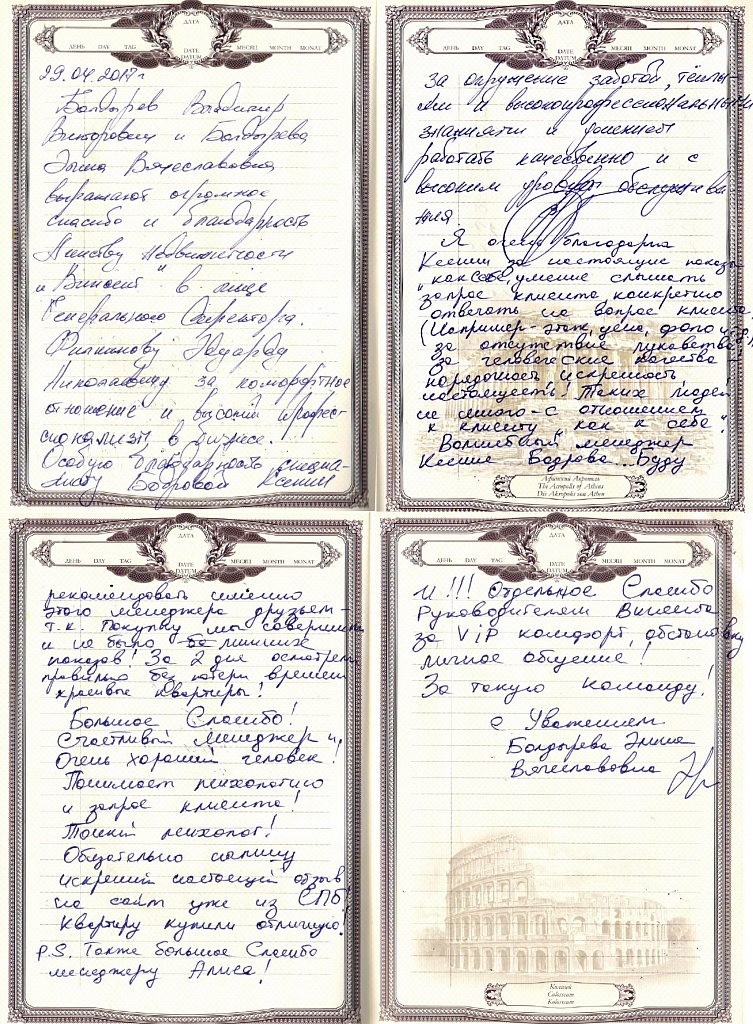 ДАТА
ДЕНЬ DAY TAG DATE DATUM МЕСЯЦ MONTH MONAT
29.04.2017г
Болдырев Владимир
Викторович и Болдырева
Элина Вячеславовна
выражают огромное
спасибо и благодарность
Агентству Недвижимости
"Винсент" в лице
Генерального Директора
Николаевичу за комфортное
отношение и высокий професс
сионализм в бизнесе.
Особую благодарность специа-
листу Бодровой Ксении
ДАТА
ДЕНЬ DAY TAG DATE DATUM МЕСЯЦ MONTH MONAT
за окружение заботой, тёплы-
ми и высокопрофессиональными
знаниями и умением
работать качественно и с
высоким уровнем обслужива
ния.
Я очень благодарна
Ксении за настоящие показы
"как себе", умение слышать
запрос клиента, конкретно
отвечать на вопрос клиента
(Например - этаж, цена, фото и тд)
за отсутствие лукавства
за человеческие качества -
порядочность искренность
настоящесть! Таких людей
не много - с отношением
к клиенту "как к себе".
Волшебный менеджер
Ксения Бодрова... Буду
Афинский Акрополь
The Acropolis of Athens
Die Akropolis von Athen
ДАТА
ДЕНЬ DAY TAG DATE DATUM МЕСЯЦ MONTH MONAT
рекомендовать именно
этого менеджера друзьям -
т.к. Покупку мы совершили
и не было лишних
показов! За 2 дня осмотрели
правильно без потери времени
красивые квартиры!
Большое Спасибо!
Счастливый Менеджер и
Очень хороший человек!
Понимает психологию
и запрос клиента!
Тонкий психолог!
Обязательно напишу
искрений настоящий отзыв
на сайт уже из СПб!
Квартиру купили отличную!
P.S. Также большое Спасибо
менеджеру Алиса!
ДАТА
ДЕНЬ DAY TAG DATE DATUM МЕСЯЦ MONTH MONAT
И!!! Отдельное Спасибо
Руководителям Винсента
за ViP комфорт, обстановку
личное общение!
За такую команду!
с Уважением
Болдырева Элина
Вячеславовна
Колизей
Colosseum
Kolosseum